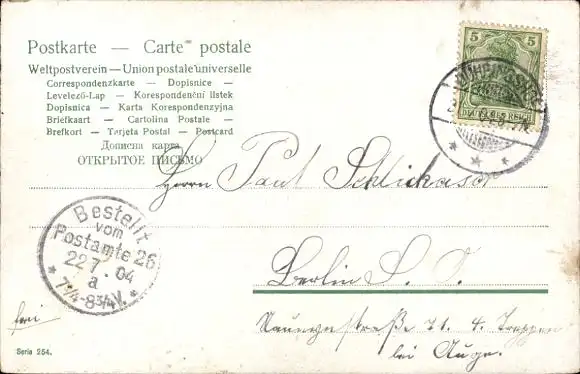 Postkarte — Carte postale
Weltpostverein — Union postale universelle
Correspondenzkarte - Dopisnice -
Levelező-Lap - Korespondenční lístek
Dopisnica - Karta Korespondenzyjna
Briefkaart - Cartolina Postale -
Brefkort - Tarjeta Postal - Postcard
Дописни карта
ОТКРЫТОЕ ПИСЬМО
5 5
DEUTSCHES REICH
Herrn Paul
Bestellt
vom
Postamte 26
22 7. 04
a
7¼-8¾V.
Berlin S. O.
frei
straße 71. 4. Treppen
bei
Serie 254.